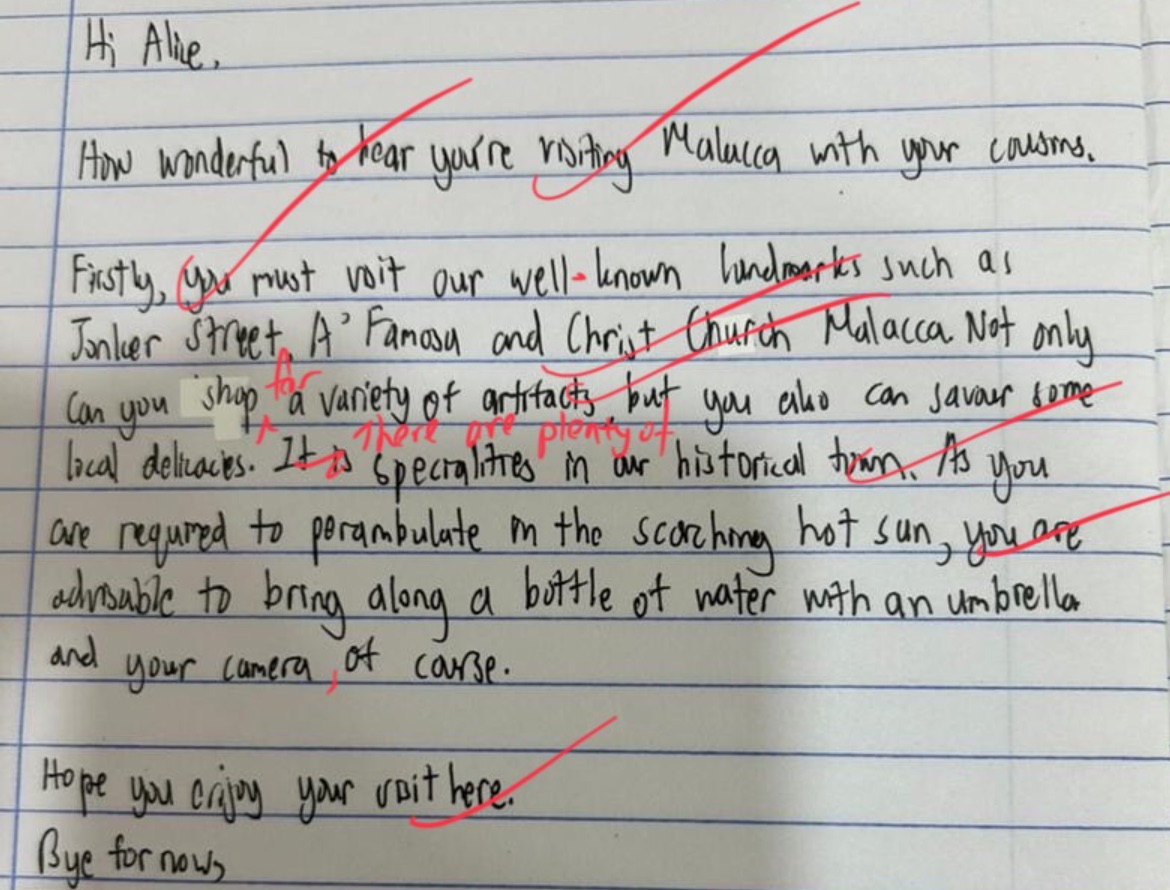 Hi Alice,
How wonderful to hear you're visiting Malacca with your cousins.
Firstly, you must visit our well-known landmarks such as
Jonker Street, A' Famosa and Christ Church Malacca. Not only
for
can you shop a variety of artifacts, but you also can savour some
There are plenty of
local delicacies. It is specialities in our historical town. As you
are required to perambulate in the scorching hot sun, you are
advisable to bring along a bottle of water with an umbrella
and your camera, of course.
Hope you enjoy your visit here.
Bye for now,